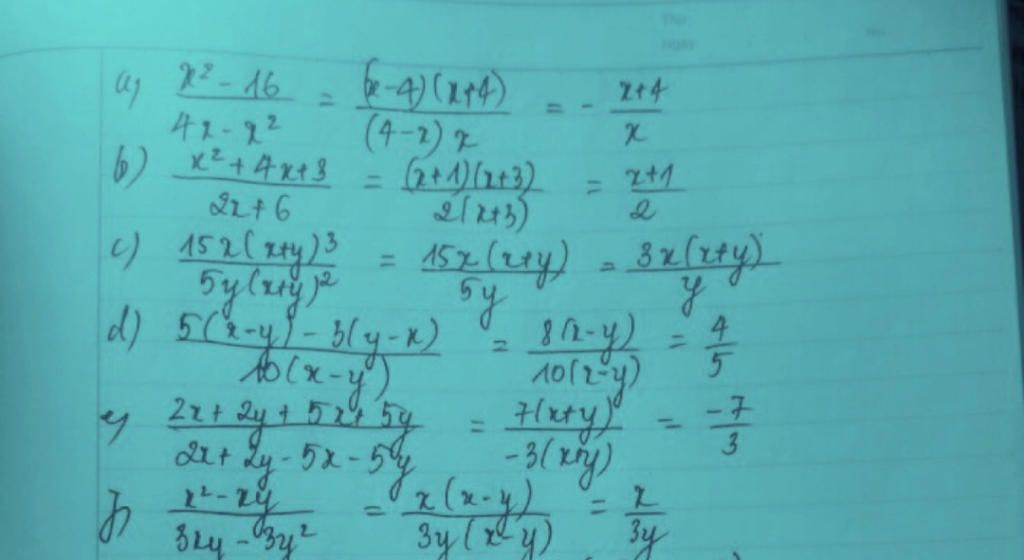 a) \frac{x² - 16}{4x - x²} = \frac{(x-4)(x+4)}{(4-x)x} = - \frac{x+4}{x}
b) \frac{x² + 4x + 3}{2x + 6} = \frac{(x+1)(x+3)}{2(x+3)} = \frac{x+1}{2}
c) \frac{15x(x+y)³}{5y(x+y)²} = \frac{15x(x+y)}{5y} = \frac{3x(x+y)}{y}
d) \frac{5(x-y) - 3(y-x)}{10(x-y)} = \frac{8(x-y)}{10(x-y)} = \frac{4}{5}
e) \frac{2x + 2y + 5x + 5y}{2x + 2y - 5x - 5y} = \frac{7(x+y)}{-3(x+y)} = \frac{-7}{3}
f) \frac{x² - xy}{3xy - 3y²} = \frac{x(x-y)}{3y(x-y)} = \frac{x}{3y}